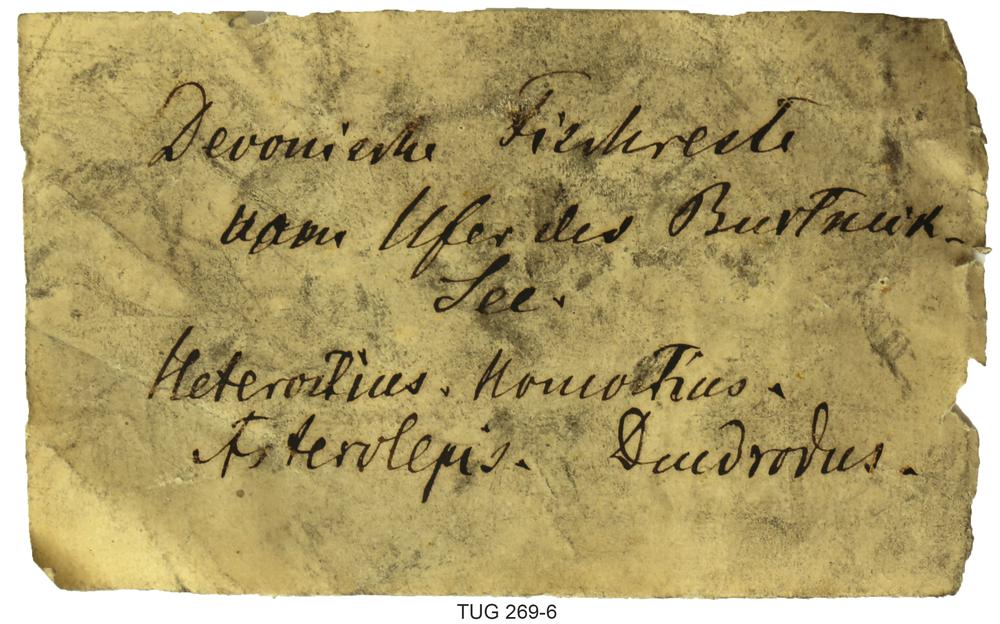 Devonische Fischreste
vom Ufer des Burtneck-
See.
Heterostius. Homostius.
Asterolepis. Dendrodus.
TUG 269-6